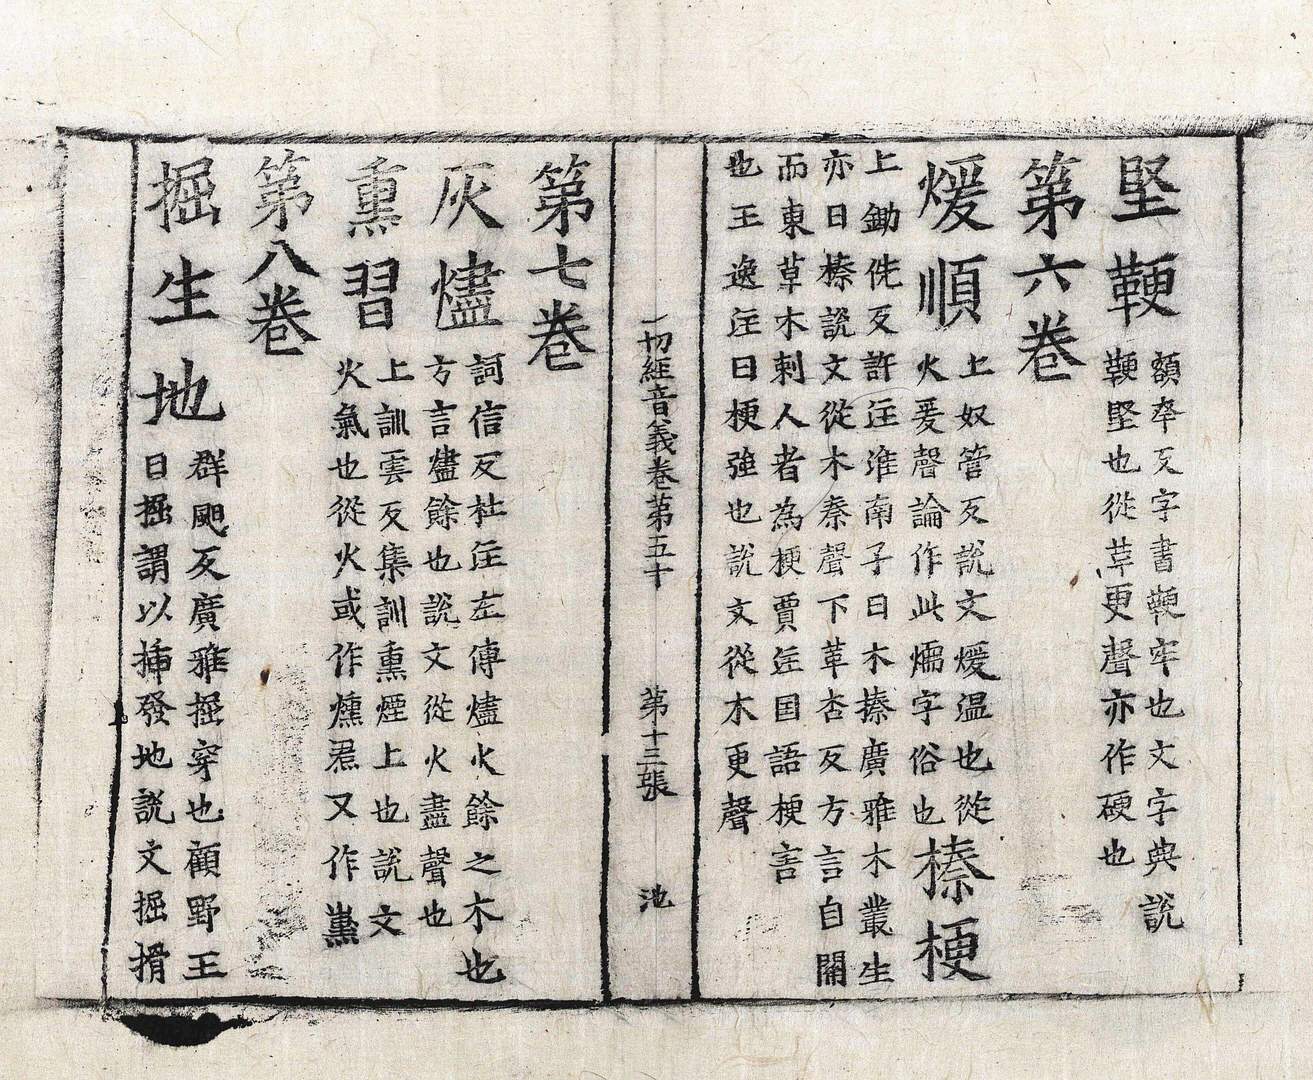 堅鞕
額卒反字書鞕牢也文字典說
鞕堅也從革更聲亦作硬也
第六卷
煖順
上奴管反說文煖温也從
火爰聲論作此燸字俗也
榛梗
上鋤侁反許注淮南子曰木榛廣雅木叢生
亦曰榛說文從木秦聲下革杏反方言自關
而東草木刺人者為梗賈注国語梗害
也王逸注曰梗強也說文從木更聲
一切經音義卷第五十 第十三張 池
第七卷
灰燼
詞信反杜注左傳燼火餘之木也
方言燼餘也說文從火盡聲也
熏習
上訓雲反集訓熏煙上也說文
火氣也從火或作燻焄又作𤋱
第八卷
掘生地
群䬍反廣雅掘穿也顧野王
曰掘謂以揷發地說文掘搰